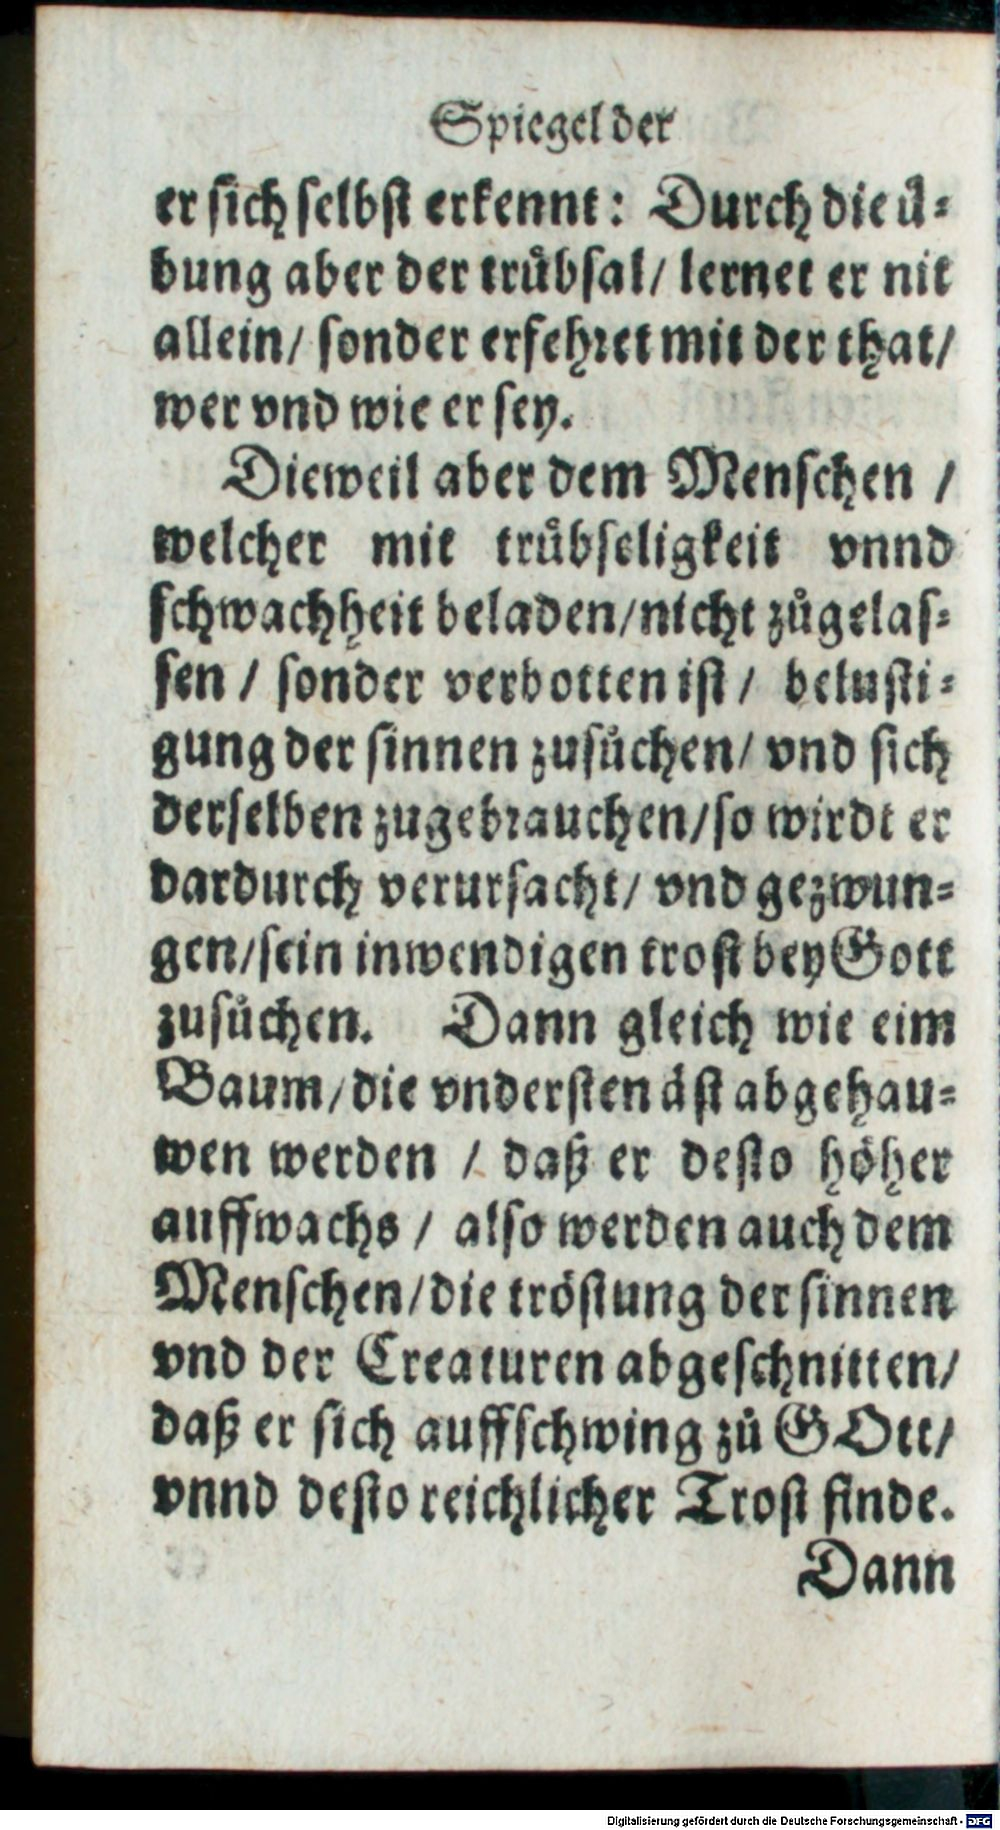 Spiegel der
er sich selbst erkennt: Durch die ü-
bung aber der trübsal/ lernet er nit
allein/ sonder erfehret mit der that/
wer vnd wie er sey.
Dieweil aber dem Menschen /
welcher mit trübseligkeit vnnd
schwachheit beladen/nicht zůgelas-
sen / sonder verbotten ist / belusti-
gung der sinnen zusůchen/ vnd sich
derselben zugebrauchen/so wirdt er
dardurch verursacht/ vnd gezwun-
gen/sein inwendigen trost bey Gott
zusůchen. Dann gleich wie eim
Baum/die vndersten äst abgehau-
wen werden / daß er desto höher
auffwachs / also werden auch dem
Menschen/die tröstung der sinnen
vnd der Creaturen abgeschnitten/
daß er sich auffschwing zů GOtt/
vnnd desto reichlicher Trost finde.
Dann
Digitalisierung gefördert durch die Deutsche Forschungsgemeinschaft - DFG